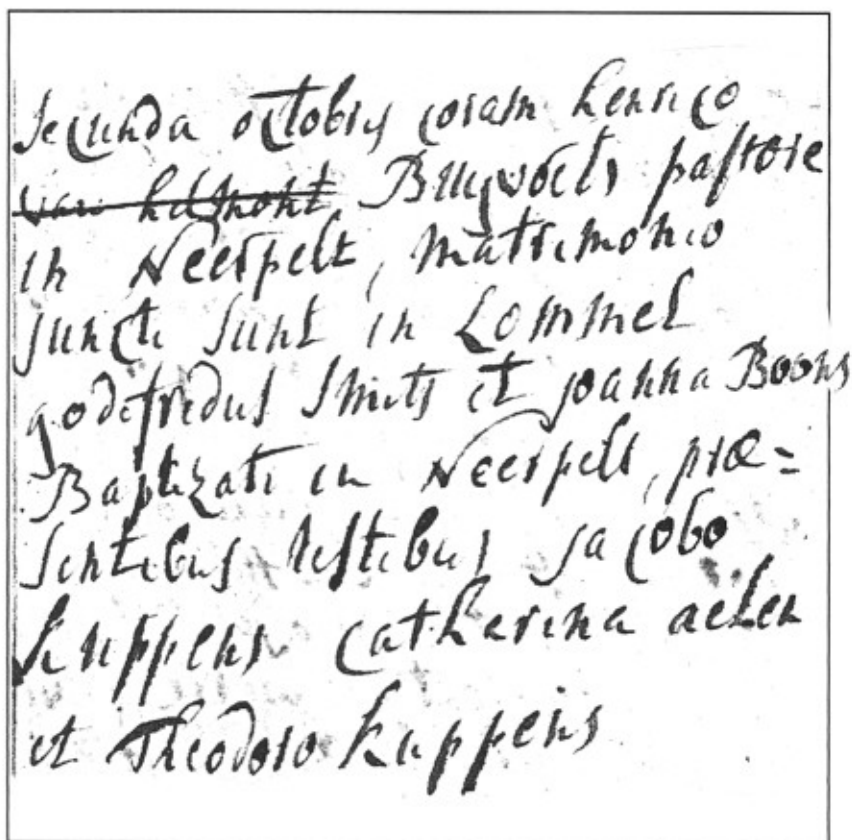 Secunda octobris coram henrico
van helmont Bruywoets pastore
in Neerpelt, matrimonio
juncti sunt in Lommel
godefridus Smits et joanna Boons
Baptizati in Neerpelt, præ=
sentibus testibus jacobo
kuppens catharina aelen
et Theodoro kuppens